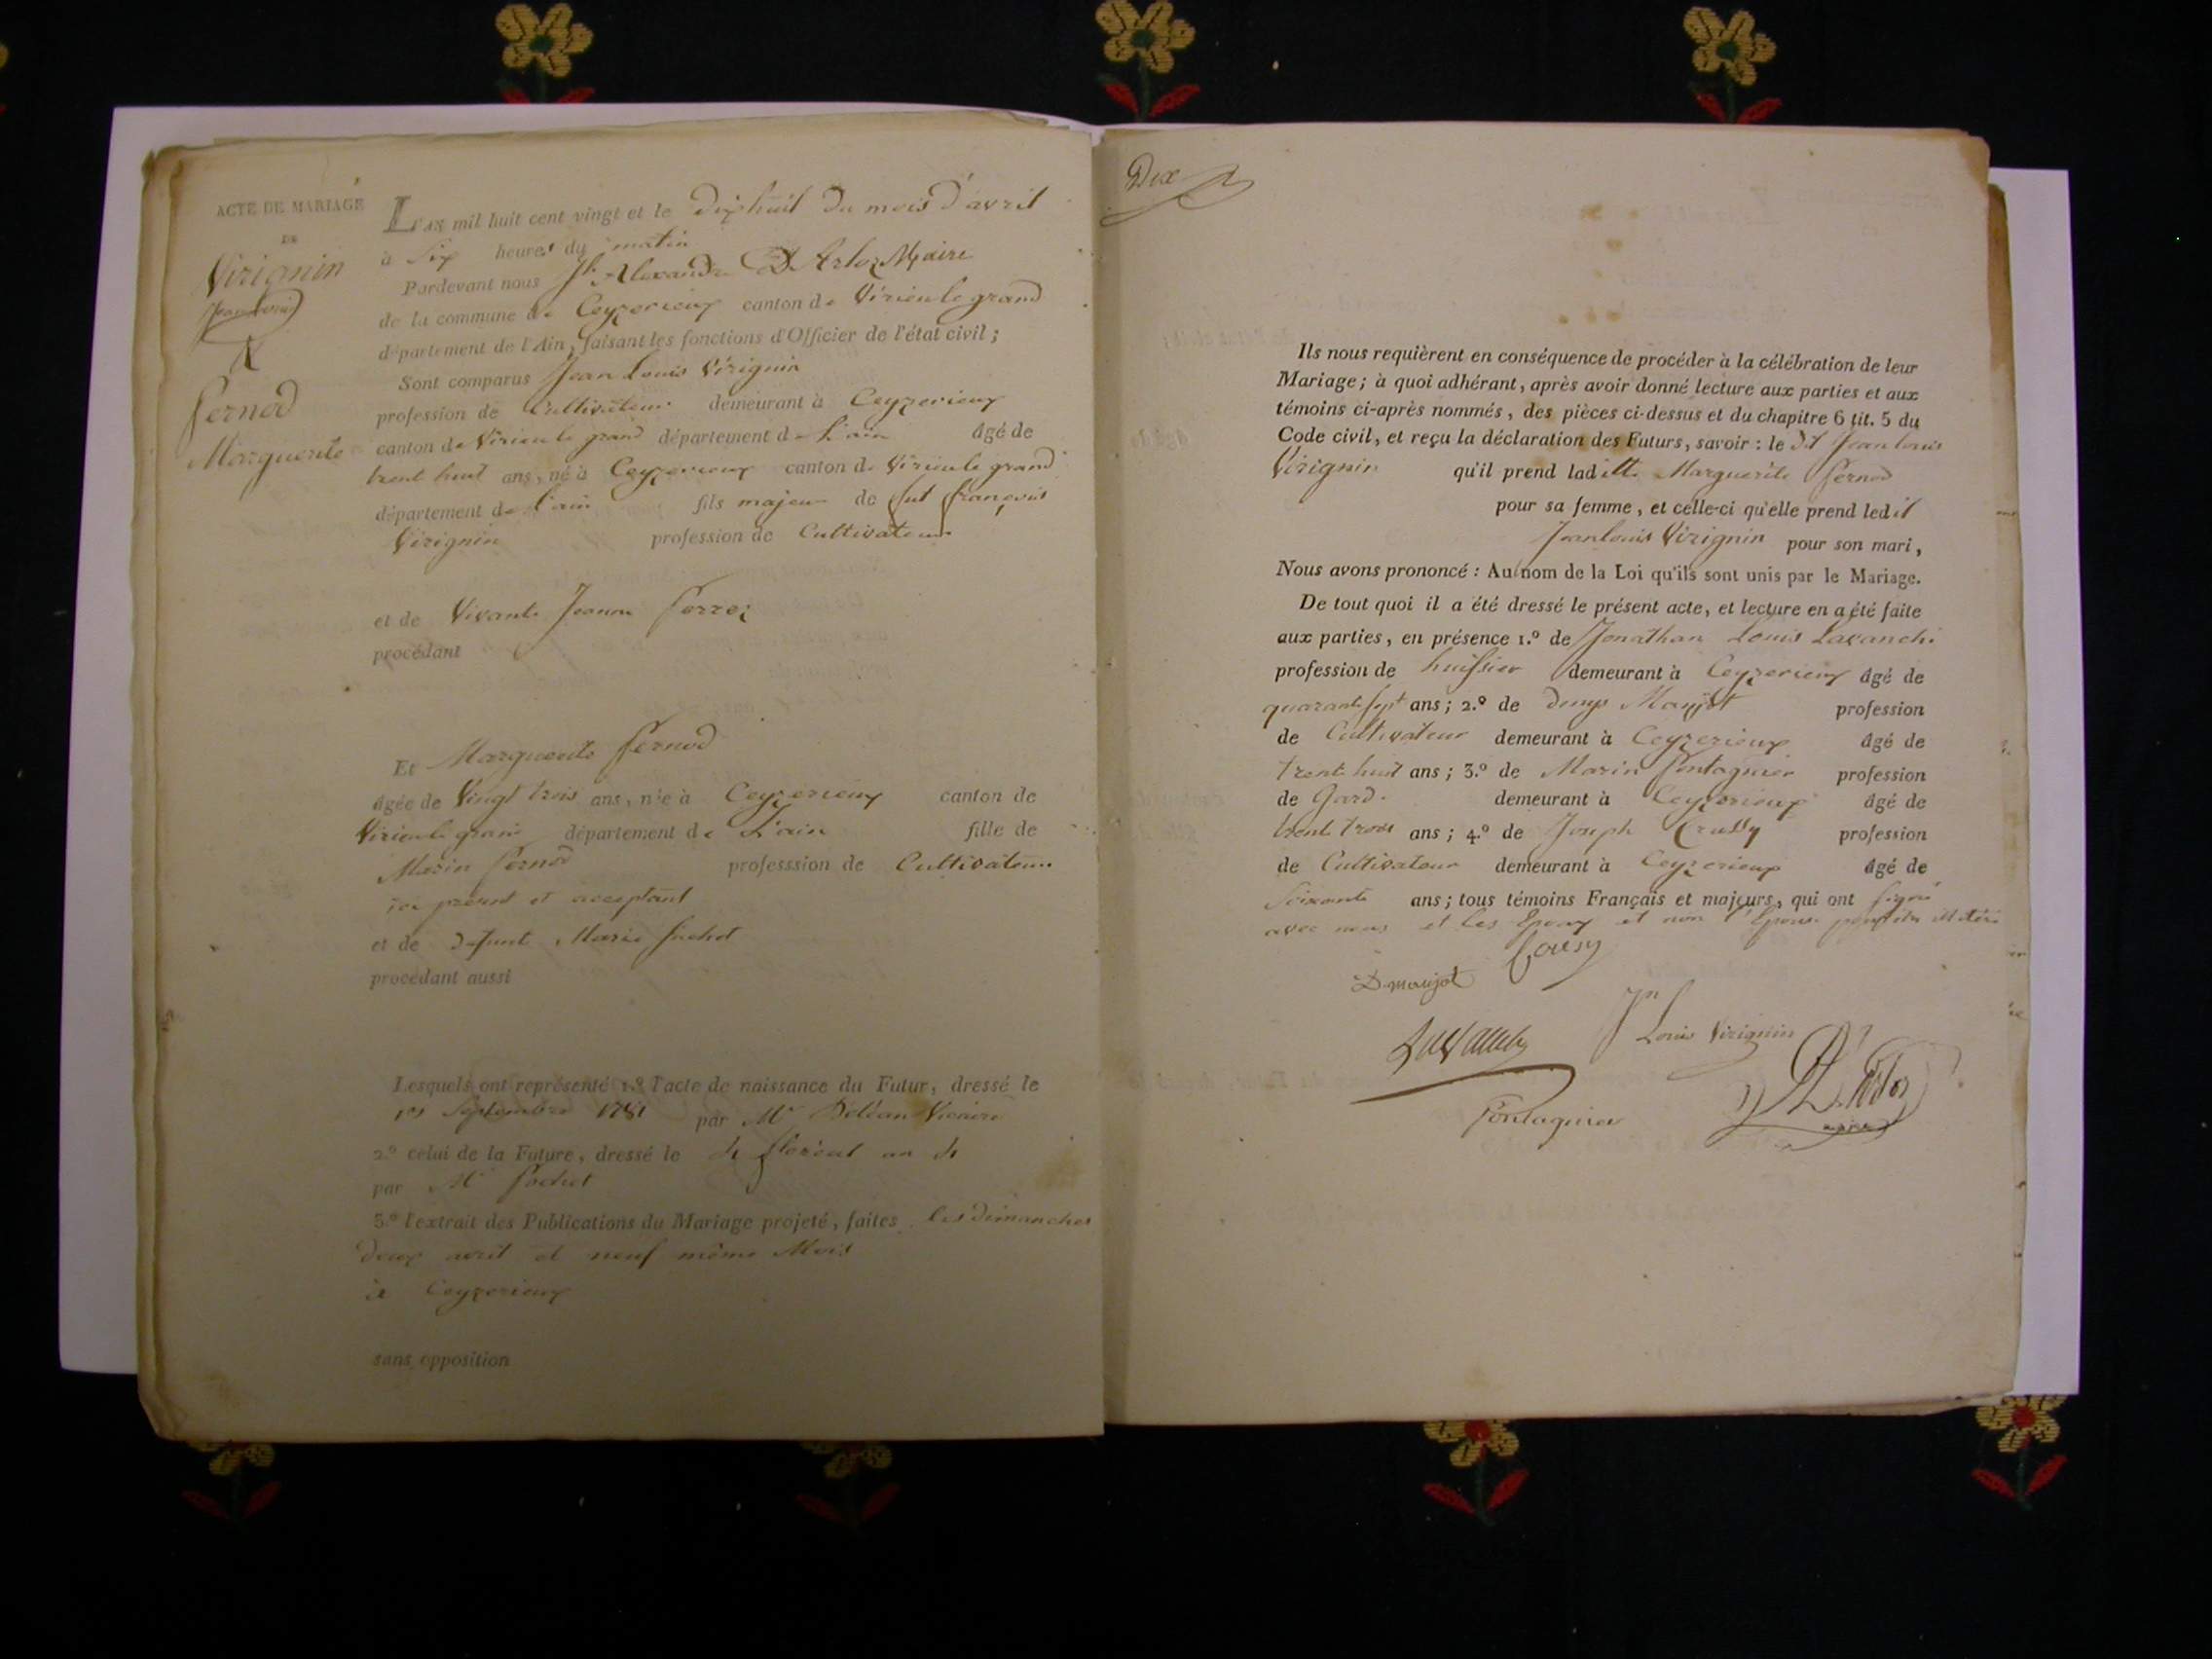 ACTE DE MARIAGE
DE
Virignin
Jean Louis
&
Pernod
Marguerite
L'AN mil huit cent vingt et le dix huit du mois d'avril
à Six heures du matin
Pardevant nous Alexandre D'Arloz Maire
de la commune de Ceyzerieux canton de Virieu le grand
département de l'Ain, faisant les fonctions d'Officier de l'état civil;
Sont comparus Jean Louis Virignin
profession de Cultivateur demeurant à Ceyzerieux
canton de Virieu le grand département de L'ain âgé de
trent huit ans, né à Ceyzerieux canton de Virieu le grand
département de L'ain fils majeur de fut françois
Virignin profession de Cultivateur
et de Vivante Jeanne
procédant
Et Marguerite Pernod
âgée de Vingt trois ans, née à Ceyzerieux canton de
Virieu le grand département de L'ain fille de
Marin Pernod professsion de Cultivateur
ici présent et acceptant
et de defunt Marie
procédant aussi
Lesquels ont représenté 1.º l'acte de naissance du Futur, dressé le
1er Septembre 1781 par Mr Vicaire
2.º celui de la Future, dressé le 4 floréal an 4
par Mr Pochet
3.º l'extrait des Publications du Mariage projeté, faites les dimanches
deux avril et neuf même Mois
à Ceyzerieux
sans opposition
Dix
Ils nous requièrent en conséquence de procéder à la célébration de leur
Mariage; à quoi adhérant, après avoir donné lecture aux parties et aux
témoins ci-après nommés, des pièces ci-dessus et du chapitre 6 tit. 5 du
Code civil, et reçu la déclaration des Futurs, savoir: le dit Jean Louis
Virignin qu'il prend laditte Marguerite Pernod
pour sa femme, et celle-ci qu'elle prend ledit
Jean louis Virignin pour son mari,
Nous avons prononcé: Au nom de la Loi qu'ils sont unis par le Mariage.
De tout quoi il a été dressé le présent acte, et lecture en a été faite
aux parties, en présence 1.º de Jonathan Louis Lavanchi
profession de huissier demeurant à Ceyzerieux âgé de
quarante sept ans; 2.º de denys Maujot profession
de Cultivateur demeurant à Ceyzerieux âgé de
trente huit ans; 3.º de Marin Pontagnier profession
de Gard. demeurant à Ceyzerieux âgé de
trente trois ans; 4.º de Joseph profession
de Cultivateur demeurant à Ceyzerieux âgé de
Soixante ans; tous témoins Français et majeurs, qui ont signé
avec nous et les Epoux et non l'Epouse
D. maujot
Jn Louis Virignin
Pontagnier